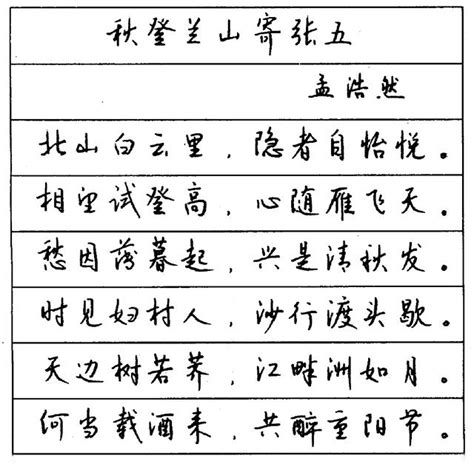 秋登兰山寄张五
孟浩然
北山白云里，隐者自怡悦。
相望试登高，心随雁飞天。
愁因薄暮起，兴是清秋发。
时见妇村人，沙行渡头歇。
天边树若荠，江畔洲如月。
何当载酒来，共醉重阳节。